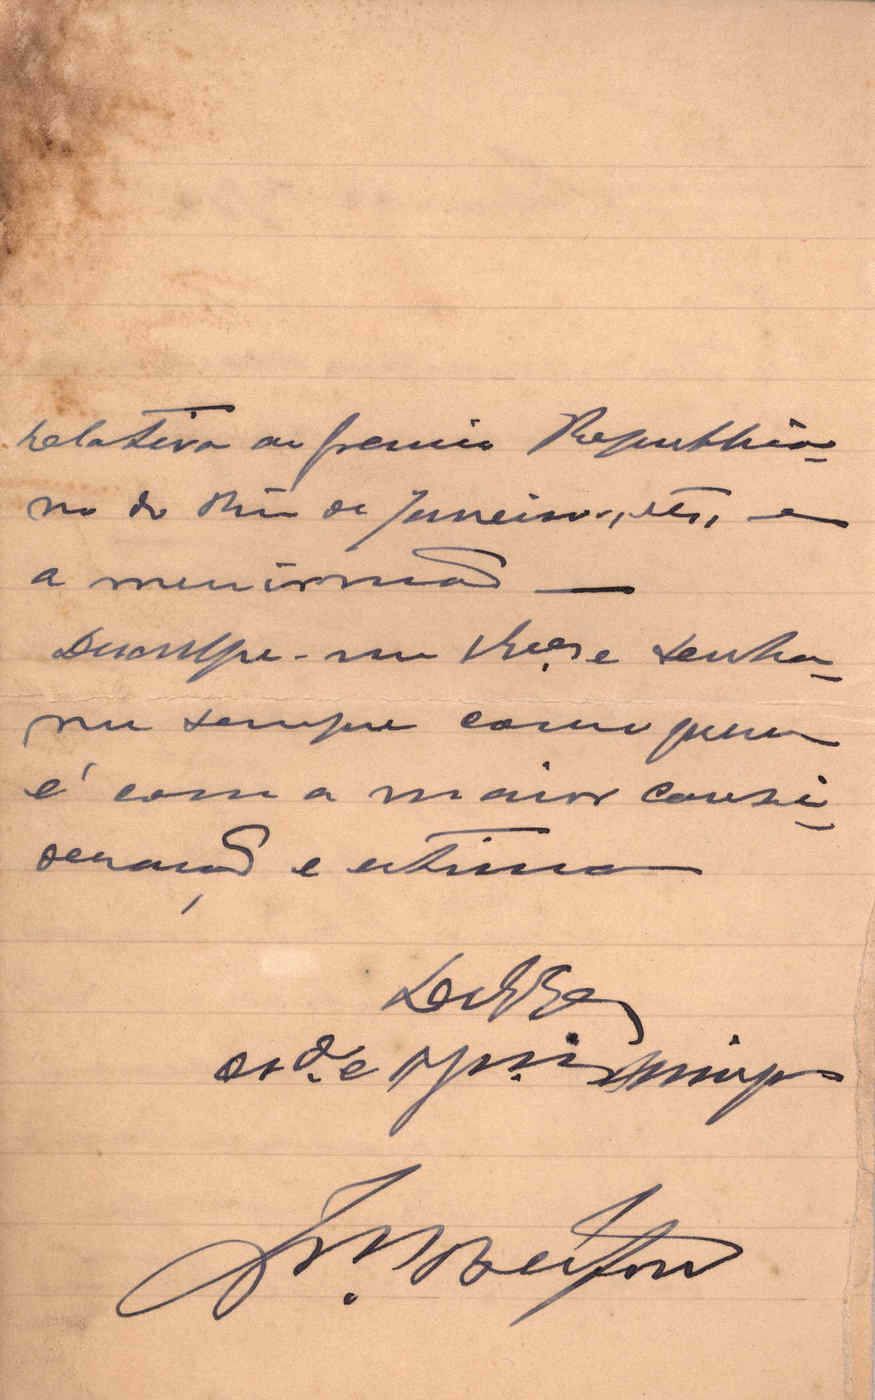 relativa ao Gremio Republica-
no do Rio de Janeiro, etc, e
a meu irmão —
Desculpe-me V. Ex.ª e tenha-
me sempre como quem
é com a maior consi-
deração e estima
De V. Ex.ª
e